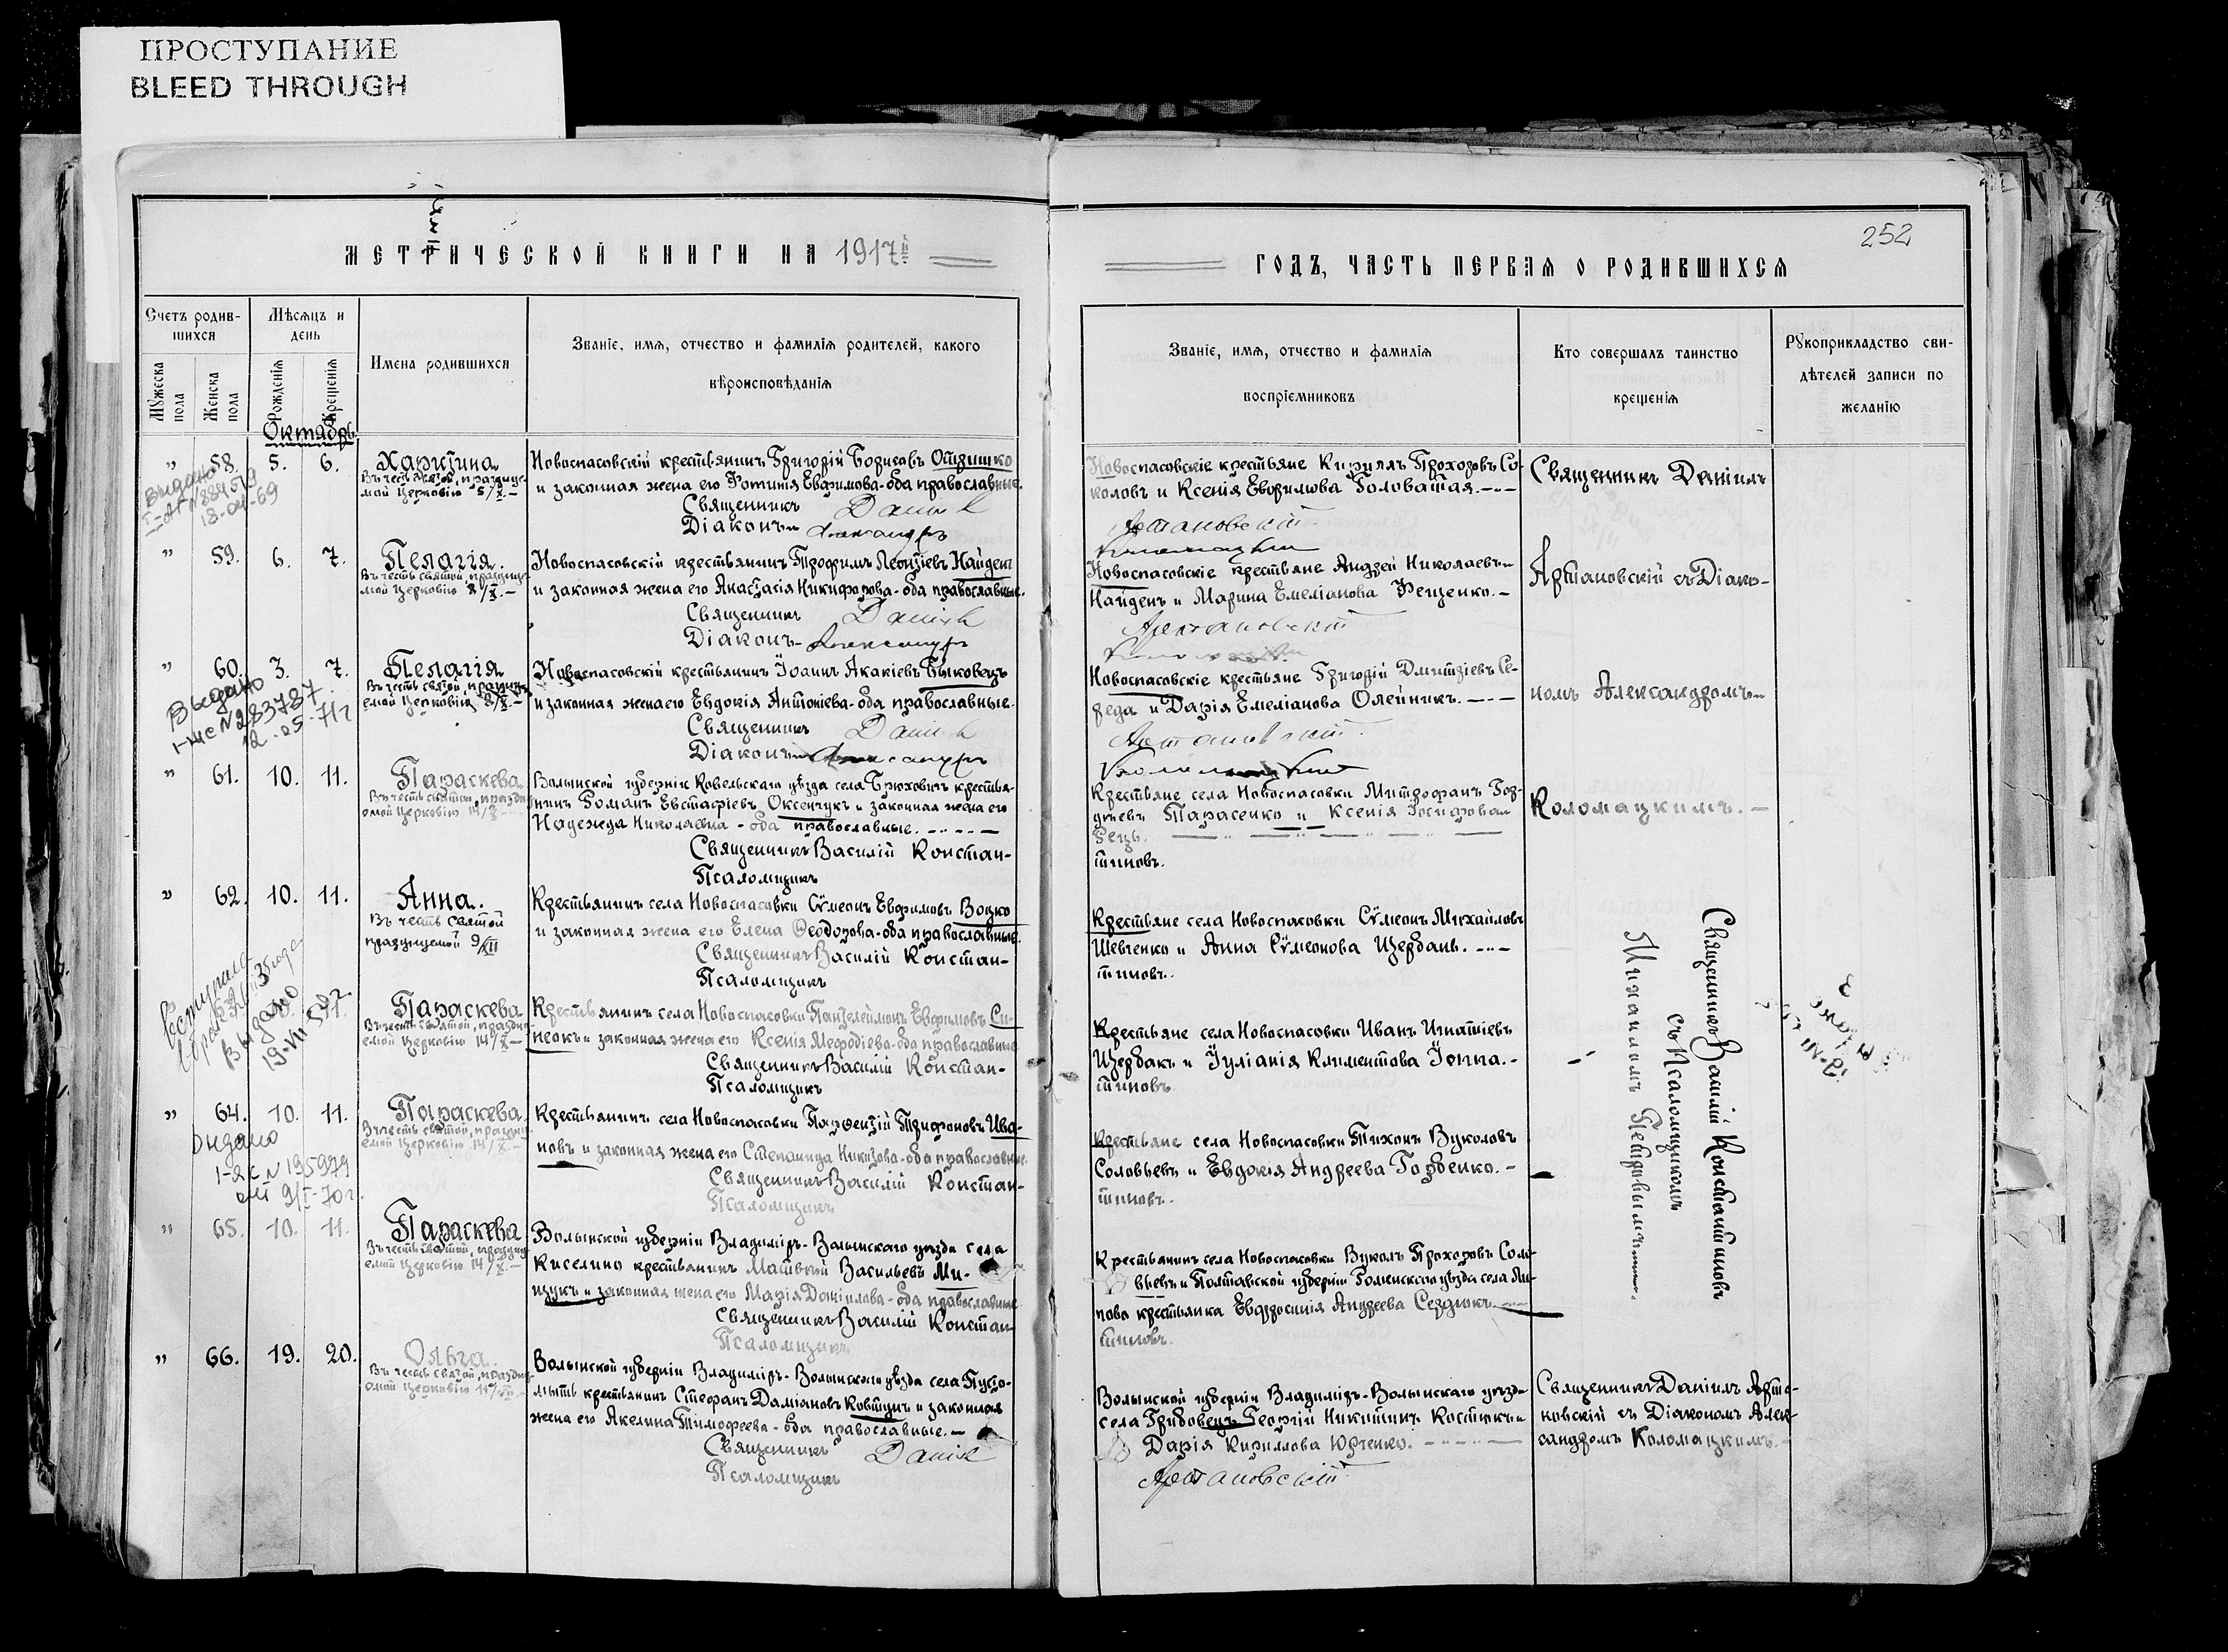 ПРОСТУПАНИЕ
BLEED THROUGH
МЕТРИЧЕСКОЙ КНИГИ НА 1917й
ГОДЪ, ЧАСТЬ ПЕРВАЯ О РОДИВШИХСЯ
252
Счетъ родив-
шихся
Мѣсяцъ и
день
Мужеска
пола
Женска
пола
Рожденія
Крещенія
Имена родившихся
Званіе, имя, отчество и фамилія родителей, какого
вѣроисповѣданія
Званіе, имя, отчество и фамилія
воспріемниковъ
Кто совершалъ таинство
крещенія
Рукоприкладство сви-
дѣтелей записи по
желанію
Октябрь
" 58. 5. 6. Харитина.
Въ честь святой, праздnуе-
мой Церковію 5/X.-
Выдано
18-04-69
Новоспасовскій крестьянинъ Григорій Борисовъ Остришко
и законная жена его Фотинія Евфимова-оба православные.
Священникъ Даніилъ
Діаконъ Александръ
Новоспасовскіе крестьяне Кириллъ Прохоровъ Со-
коловъ и Ксенія Евфимова Головатая.---
Артановскій
Коломацкій
Священникъ Даніилъ
" 59. 6. 7. Пелагія.
Въ честь святой, празднуе-
мой Церковію 8/X.-
Новоспасовскій крестьянинъ Трофимъ Леонтіевъ Найденъ
и законная жена его Анастасія Никифорова-оба православные.
Священникъ Даніилъ
Діаконъ Александръ
Новоспасовскіе крестьяне Андрей Николаевъ
Найденъ и Марина Емеліанова Фещенко.-
Артановскій
Коломацкій
Артановскій съ Діако-
" 60. 3. 7. Пелагія
Въ честь святой, праздну-
емой Церковію 8/X.-
Выдано
I-ЖС №283787
12-05-71г
Новоспасовскій крестьянинъ Іоаннъ Акакіевъ Быковецъ
и законная жена его Евдокія Антоніева-оба православные.
Священникъ Даніилъ
Діаконъ Александръ
Новоспасовскіе крестьяне Григорій Дмитріевъ Се-
реда и Дарія Емеліанова Олейникъ.---
Артановскій
Коломацкій
номъ Александромъ
" 61. 10. 11. Параскева
Въ честь святой, праздну-
емой Церковію 14/X
Волынской губерніи Ковельскаго уѣзда села Брюховичъ крестья-
нинъ Романъ Евстафіевъ Оксенчукъ и законная жена его
Надежда Николаевна - оба православные.
Священникъ Василій Констан-
Псаломщикъ
Крестьяне села Новоспасовки Митрофанъ Гор-
діевъ Тарасенко и Ксенія Іосифова
тиновъ.
Коломацкимъ.-
" 62. 10. 11. Анна.
Въ честь святой
празднуемой 9/XII
Крестьянинъ села Новоспасовки Сѵмеонъ Евфимовъ Воцко
и законная жена его Елена Ѳеодорова-оба православные.
Священникъ Василій Констан-
Псаломщикъ
Крестьяне села Новоспасовки Сѵмеонъ Михайловъ
Шевченко и Анна Сѵмеонова Щербань.---
тиновъ.
Параскева
Въ честь святой, праздну-
емой Церковію 14/X-
Выдано
Крестьянинъ села Новоспасовки Пантелеймонъ Евфимовъ Си-
неокъ и законная жена его Ксенія Меѳодіева-оба православные
Священникъ Василій Констан-
Псаломщикъ
Крестьяне села Новоспасовки Иванъ Игнатіевъ
Щербакъ и Іуліанія Климентова Іонна.-
тиновъ
Священникъ Василій Константиновъ
съ Псаломщикомъ
Михаиломъ
" 64. 10. 11. Параскева
Въ честь святой, праздну-
емой Церковію 14/X.-
Выдано
№ 195979
от 9/I-70г.
Крестьянинъ села Новоспасовки Парѳентій Трифоновъ Ива-
новъ и законная жена его Степанида Никитова-оба православные
Священникъ Василій Констан-
Псаломщикъ
Крестьяне села Новоспасовки Тихонъ Вуколовъ
Соловьевъ и Евдокія Андреева Горбенко.-
тиновъ.
" 65. 10. 11. Параскева
Въ честь святой, праздну-
емой Церковію 14/X.-
Волынской губерніи Владиміръ-Волынскаго уѣзда села
Киселино крестьянинъ Матвѣй Васильевъ Ми-
щукъ и законная жена его Марія Даніилова-оба православные
Священникъ Василій Констан-
Псаломщикъ
Крестьянинъ села Новоспасовки Вуколъ Прохоровъ Соло-
вьевъ и Полтавской губерніи Роменскаго уѣзда села Ли-
пово крестьянка Евфросинія Андреева Сердюкъ.
тиновъ.
" 66. 19. 20. Ольга.
Въ честь святой, праздну-
емой Церковію 11/VII.
Волынской губерніи Владиміръ-Волынскаго уѣзда села Пусто-
мыть крестьянинъ Стефанъ Даміановъ Ковтунъ и законная
жена его Акелина Тимофеева-оба православные.-
Священникъ Даніилъ
Псаломщикъ
Волынской губерніи Владиміръ-Волынскаго уѣзда
села Грибовецъ Георгій Никитинъ Костюкъ и
Дарія Кириллова Юрченко.
Артановскій
Священникъ Даніилъ Арта-
новскій съ Діакономъ Алек-
сандромъ Коломацкимъ.